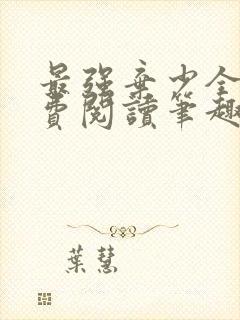 最強棄少全
費閱讀筆趣
葉慧